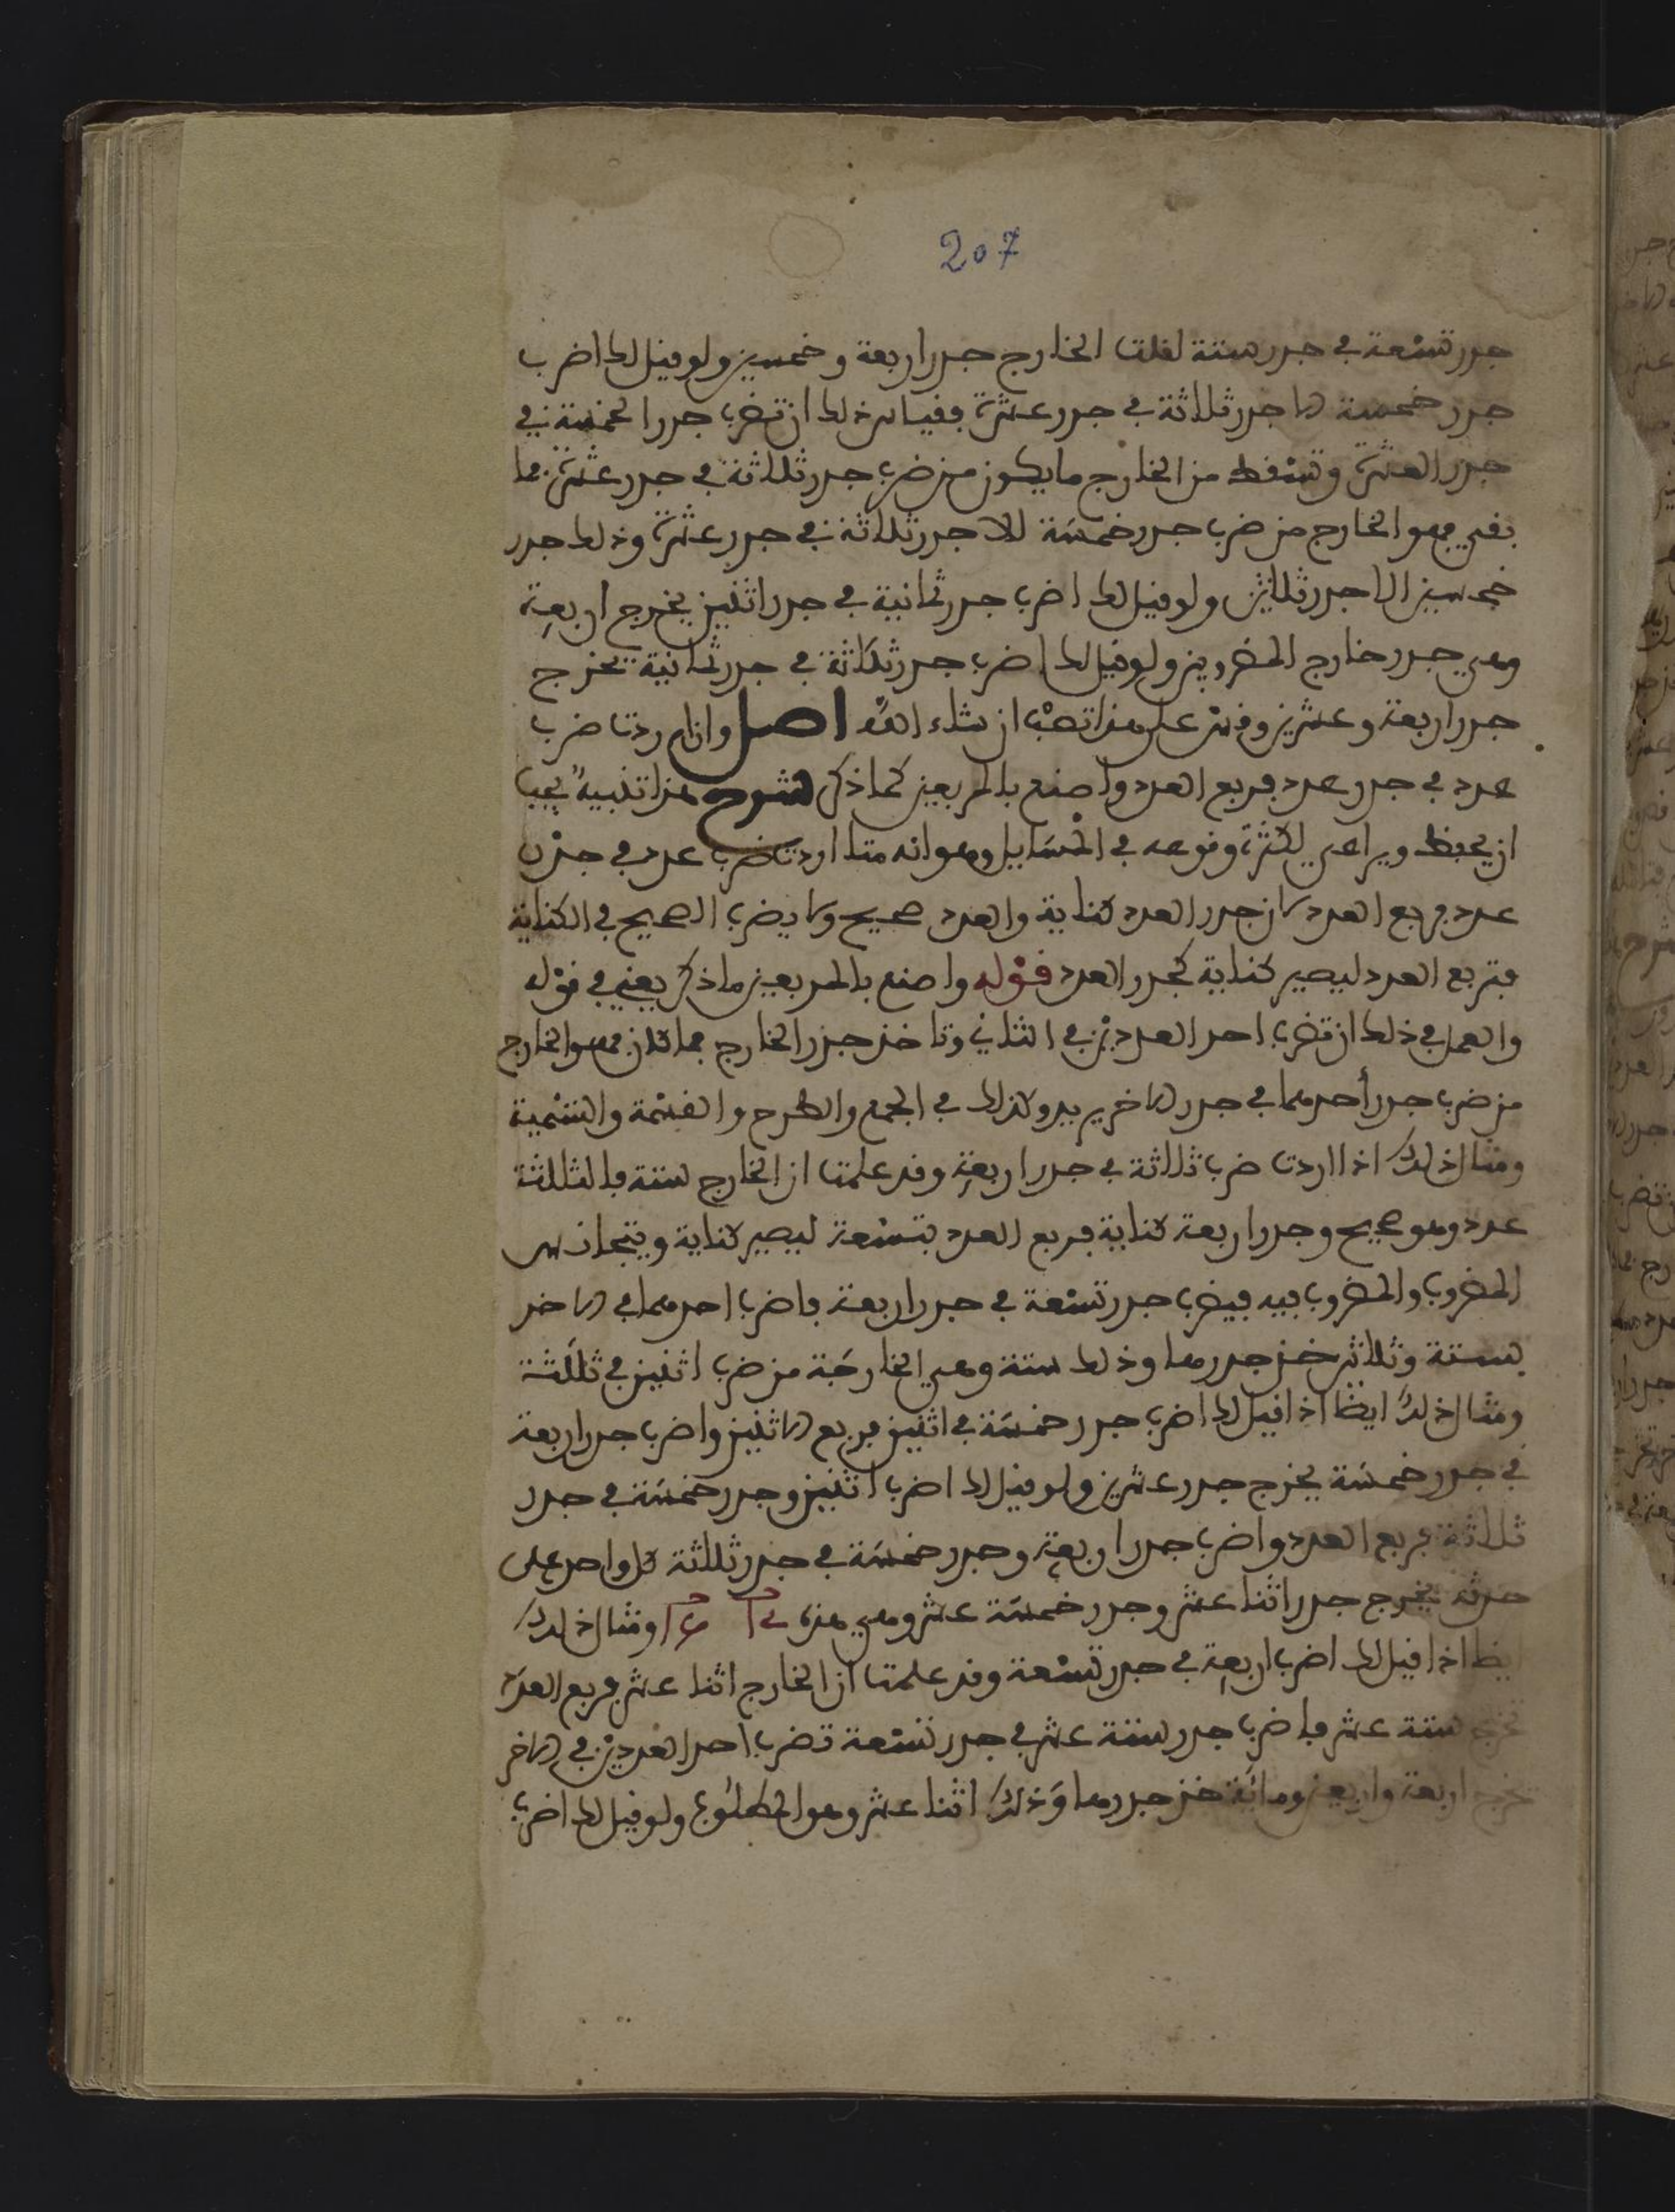 207
جدر تسعة في جدر ستة لقلت الخارج جدر اربعة وخمسين ولو قيل لك اضرب
جدر خمسة الا جدر ثلاثة في جدر عشرة فقياس ذلك ان تضرب جدر الخمسة في
جدر العشرة وتسقط من الخارج ما يكون من ضرب جدر ثلاثة في جدر عشرة فما
بقي فهو الخارج من ضرب جدر خمسة الا جدر ثلاثة في جدر عشرة وذلك جدر
خمسين الا جدر ثلاثين ولو قيل لك اضرب جدر ثمانية في جدر اثنين يخرج اربعة
وهي جدر خارج المضروبين ولو قيل لك اضرب جدر ثلاثة في جدر ثمانية يخرج
جدر اربعة وعشرين وقس على هذا تصب ان شاء الله اصل وان اردت ضرب
عدد في جدر عدد فربع العدد واصنع بالمربعين كما ذكر شرح هذا تنبيه يجب
ان يحفظ ويراعى لكثرة وقوعه في المسايل وهو انه متا اردت ضرب عدد في جدر
عدد فربع العدد لان جدر العدد كناية والعدد صحيح ولا يضرب الصحيح في الكناية
فتربع العدد ليصير كناية كجدر العدد قوله واصنع بالمربعين ما ذكر يعني في قوله
والعمل في ذلك ان تضرب احد العددين في الثاني وتاخذ جذر الخارج فما كان فهو الخارج
من ضرب جدر أحدهما في جدر الاخر يريد وكذلك في الجمع والطرح والقسمة والتسمية
ومثال ذلك اذا اردت ضرب ثلاثة في جدر اربعة وقد علمت ان الخارج ستة فالثلثة
عدد وهو صحيح وجدر اربعة كناية فربع العدد بتسعة ليصير كناية ويتجانس
المضروب والمضروب فيه فيضرب جدر تسعة في جدر اربعة فاضرب احدهما في الاخر
بستة وثلاثين خذ جدرها وذلك ستة وهي الخارجة من ضرب اثنين في ثلثة
ومثال ذلك ايضا اذا قيل لك اضرب جدر خمسة في اثنين فربع الاثنين واضرب جدر اربعة
في جدر خمسة يخرج جدر عشرين ولو قيل لك اضرب اثنين وجدر خمسة في جدر
ثلاثة فربع العدد واضرب جدر اربعة وجدر خمسة في جدر ثلثة كل واحد على
حدته يخرج جدر اثنا عشر وجدر خمسة عشر وهي هذه ومثال ذلك
ايضا اذا قيل لك اضرب اربعة في جدر تسعة وقد علمت ان الخارج اثنا عشر فربع العدد
تخرج ستة عشر فاضرب جدر ستة عشر في جدر تسعة تضرب احد العددين في الاخر
تخرج اربعة واربعين ومائة خذ جدرها وذلك اثنا عشر وهو المطلوب ولو قيل لك اضرب